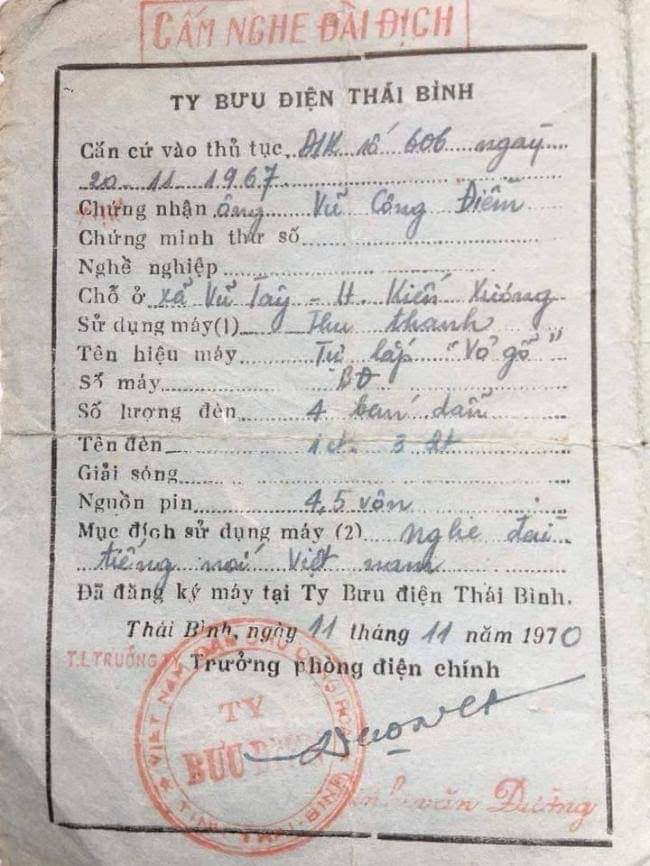 CẤM NGHE ĐÀI ĐỊCH
TY BƯU ĐIỆN THÁI BÌNH
Căn cứ vào thủ tục ĐIK số 606 ngày
20-11-1967
Chứng nhận ông Vũ Công Điễn
Chứng minh thư số
Nghề nghiệp
Chỗ ở xã Vũ Tây - H. Kiến Xương
Sử dụng máy(1) Thu thanh
Tên hiệu máy Tự lắp "Vỏ gỗ"
Số máy BĐ
Số lượng đèn 4 bán dẫn
Tên đèn 1ct. 3 2t
Giải sóng
Nguồn pin 4,5 vôn
Mục đích sử dụng máy (2) nghe đài
tiếng nói Việt nam
Đã đăng ký máy tại Ty Bưu điện Thái Bình.
Thái Bình, ngày 11 tháng 11 năm 1970
T.L TRƯỞNG TY Trưởng phòng điện chính
VIỆT NAM DÂN CHỦ CỘNG HÒA
TY
BƯU ĐIỆN
TỈNH THÁI BÌNH
văn Dưỡng